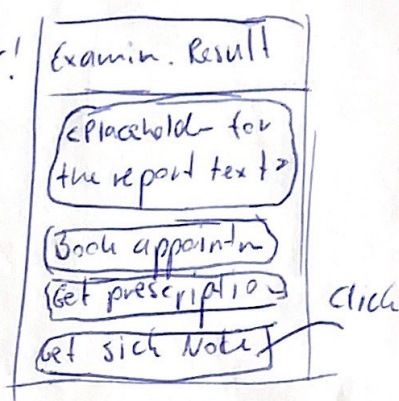 r!
Examin. Result
<Placehold for
the report text>
Book appointm
Get prescription
Get sick Note
Click